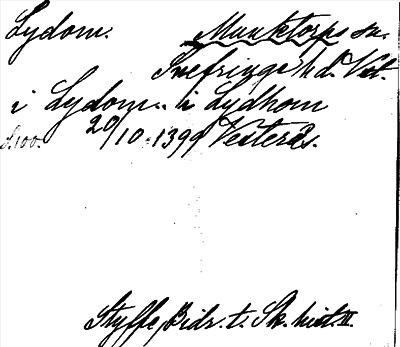 Lydom. Munktorps sn.
Snefringe hd. Vstl.
i Lydom.. i Lydhom
S.100. 20/10 1399 Vesterås.
Styffe, Bidr. t. Sk. hist. II.